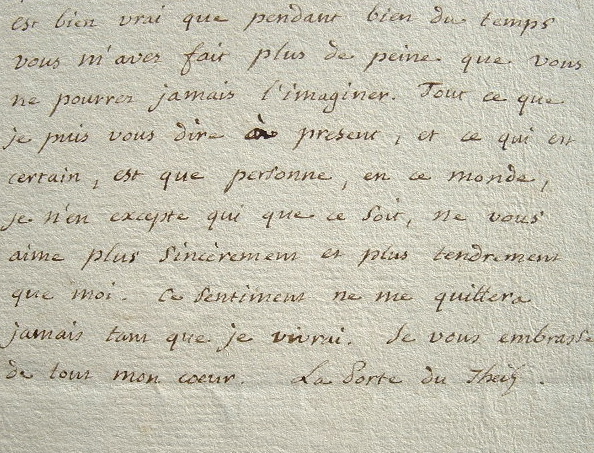 est bien vrai que pendant bien du temps
vous m'avez fait plus de peine que vous
ne pourrez jamais l'imaginer. Tout ce que
je puis vous dire à present, et ce qui est
certain, est que personne, en ce monde,
je n'en excepte qui que ce soit, ne vous
aime plus sincèrement et plus tendrement
que moi. Ce sentiment ne me quittera
jamais tant que je vivrai. Je vous embrasse
de tout mon coeur. La Porte du Theil.